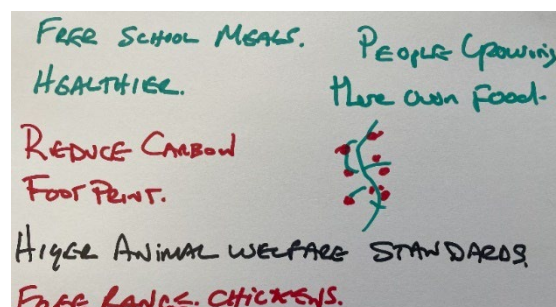 FREE SCHOOL MEALS.
HEALTHIER.
PEOPLE GROWING
there own FOOD.
REDUCE CARBON
FOOT PRINT.
HIGER ANIMAL WELFARE STANDARDS.
FREE RANGE. CHICKENS.